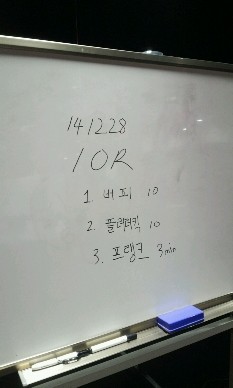 141228
10R
1. 버피 10
2. 플러터킥 10
3. 프랭크 3min